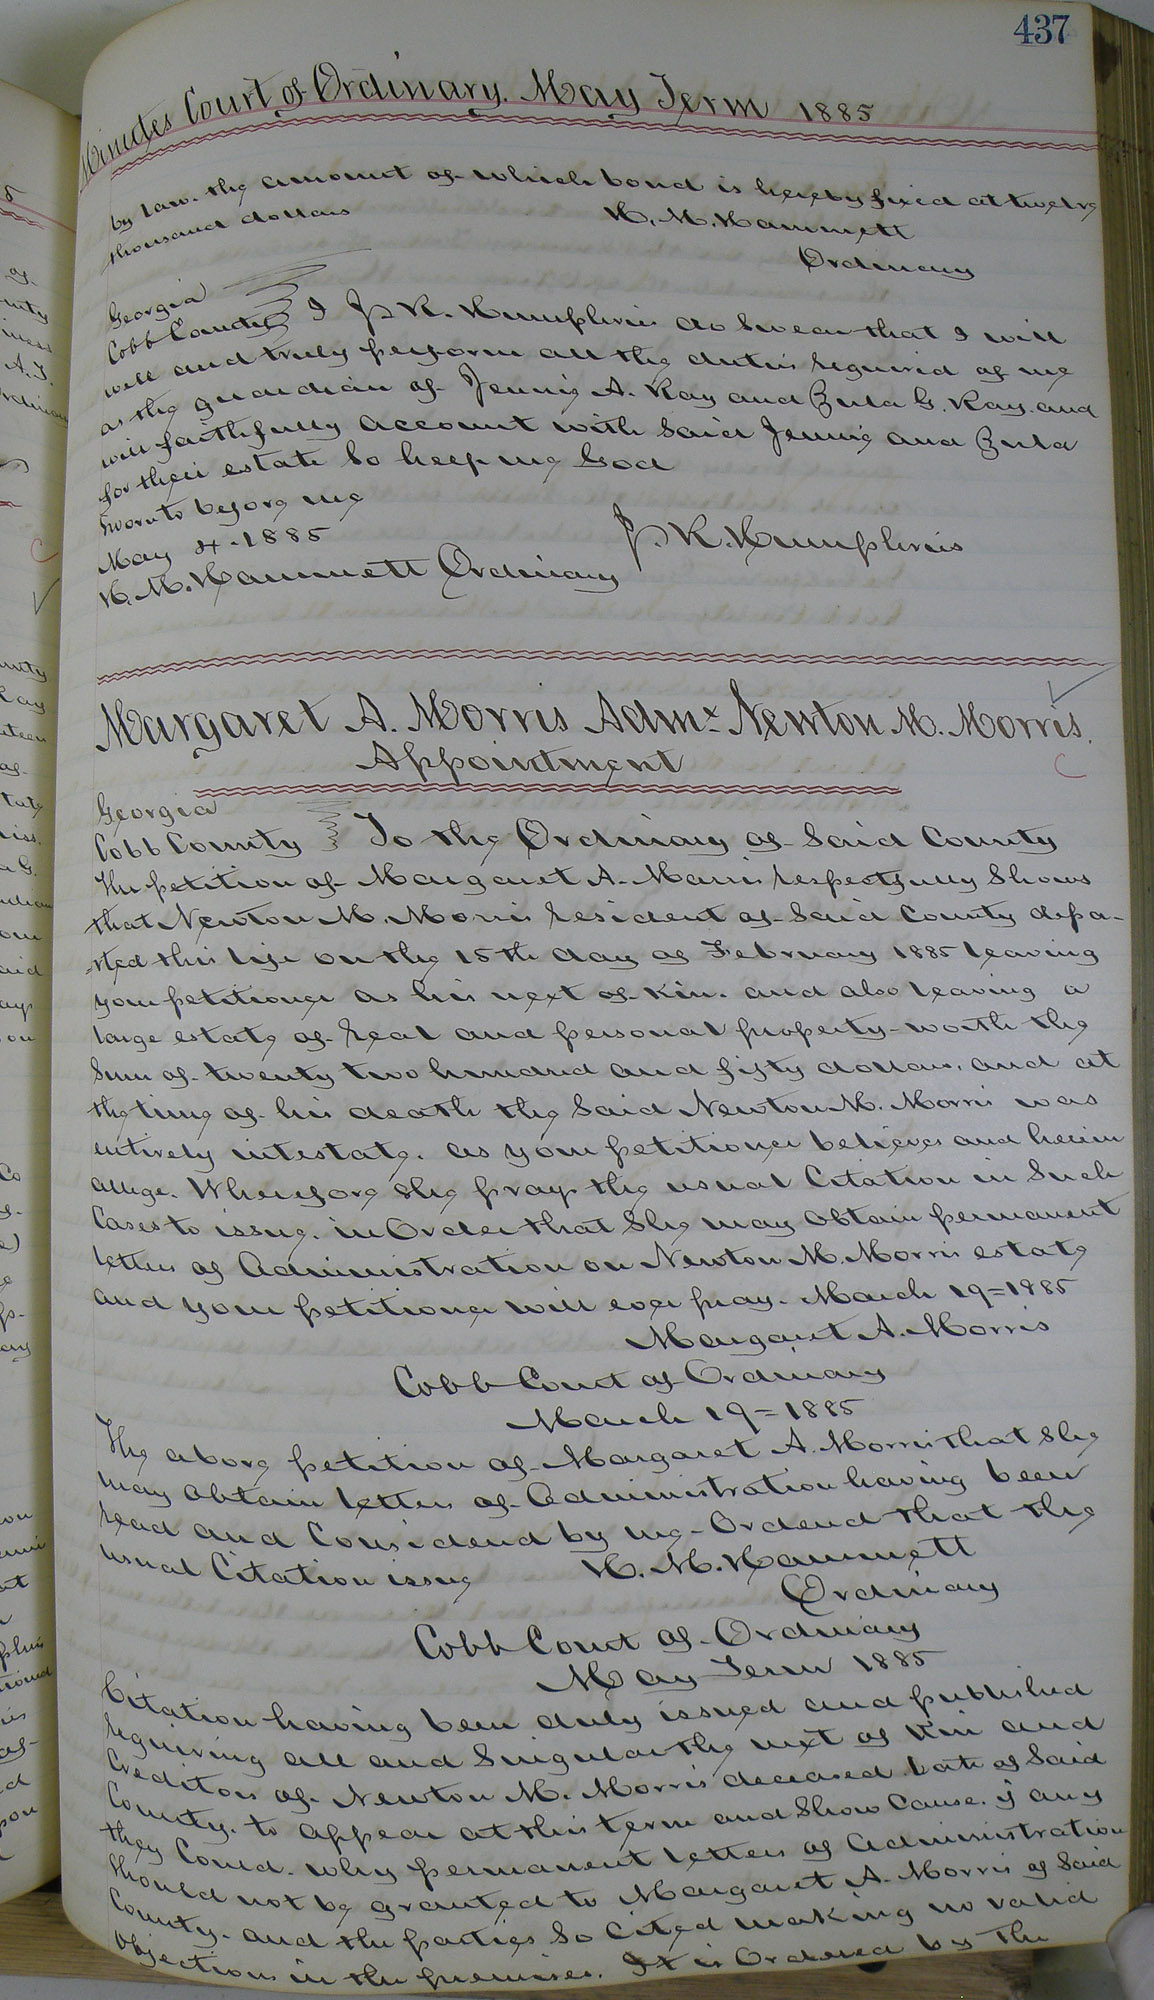 437
Minutes Court of Ordinary. May Term 1885
by law. the amount of which bond is hereby fixed at twelve
thousand dollars H. M. Hammett
Ordinary
Georgia
Cobb County I J. R. Humphris do Swear that I will
well and truly perform all the duties required of me
as the guardian of Jennie A. Ray and Zula G. Ray. and
will faithfully account with Said Jennie and Zula
for their estate So help me God
Sworn to before me
May 4-1885 J. R. Humphris
H. M. Hammett Ordinary
Margaret A. Morris Admx. Newton M. Morris.
Appointment
Georgia
Cobb County To the Ordinary of Said County
The petition of Margaret A. Morris respectfully Shows
that Newton M. Morris resident of Said County depa-
rted this life on the 15th day of February 1885 leaving
your petitioner as his next of Kin. and also leaving a
large estate of real and personal property-worth the
Sum of twenty two hundred and fifty dollars. and at
the time of his death the Said Newton M. Morris was
entirely intestate. as your petitioner believes and herein
allege. Wherefore She prays the usual Citation in Such
Cases to issue. in Order that She may obtain permanent
letters of Administration on Newton M. Morris estate
and your petitioner will ever pray. March 19=1885
Margaret A. Morris
Cobb Court of Ordinary
March 19=1885
The above petition of Margaret A. Morris that She
may obtain letters of Administration having been
read and Considered by me-Ordered that the
usual Citation issue H. M. Hammett
Ordinary
Cobb Court of Ordinary
May Term 1885
Citation having been duly issued and published
requiring all and Singular the next of Kin and
Creditors of Newton M. Morris deceased late of Said
County. to appear at this term and Show Cause. if any
they Could. why permanent letters of Administration
Should not be granted to Margaret A. Morris of Said
County. and the parties So Cited making no valid
objections in the premises. It is Ordered by the